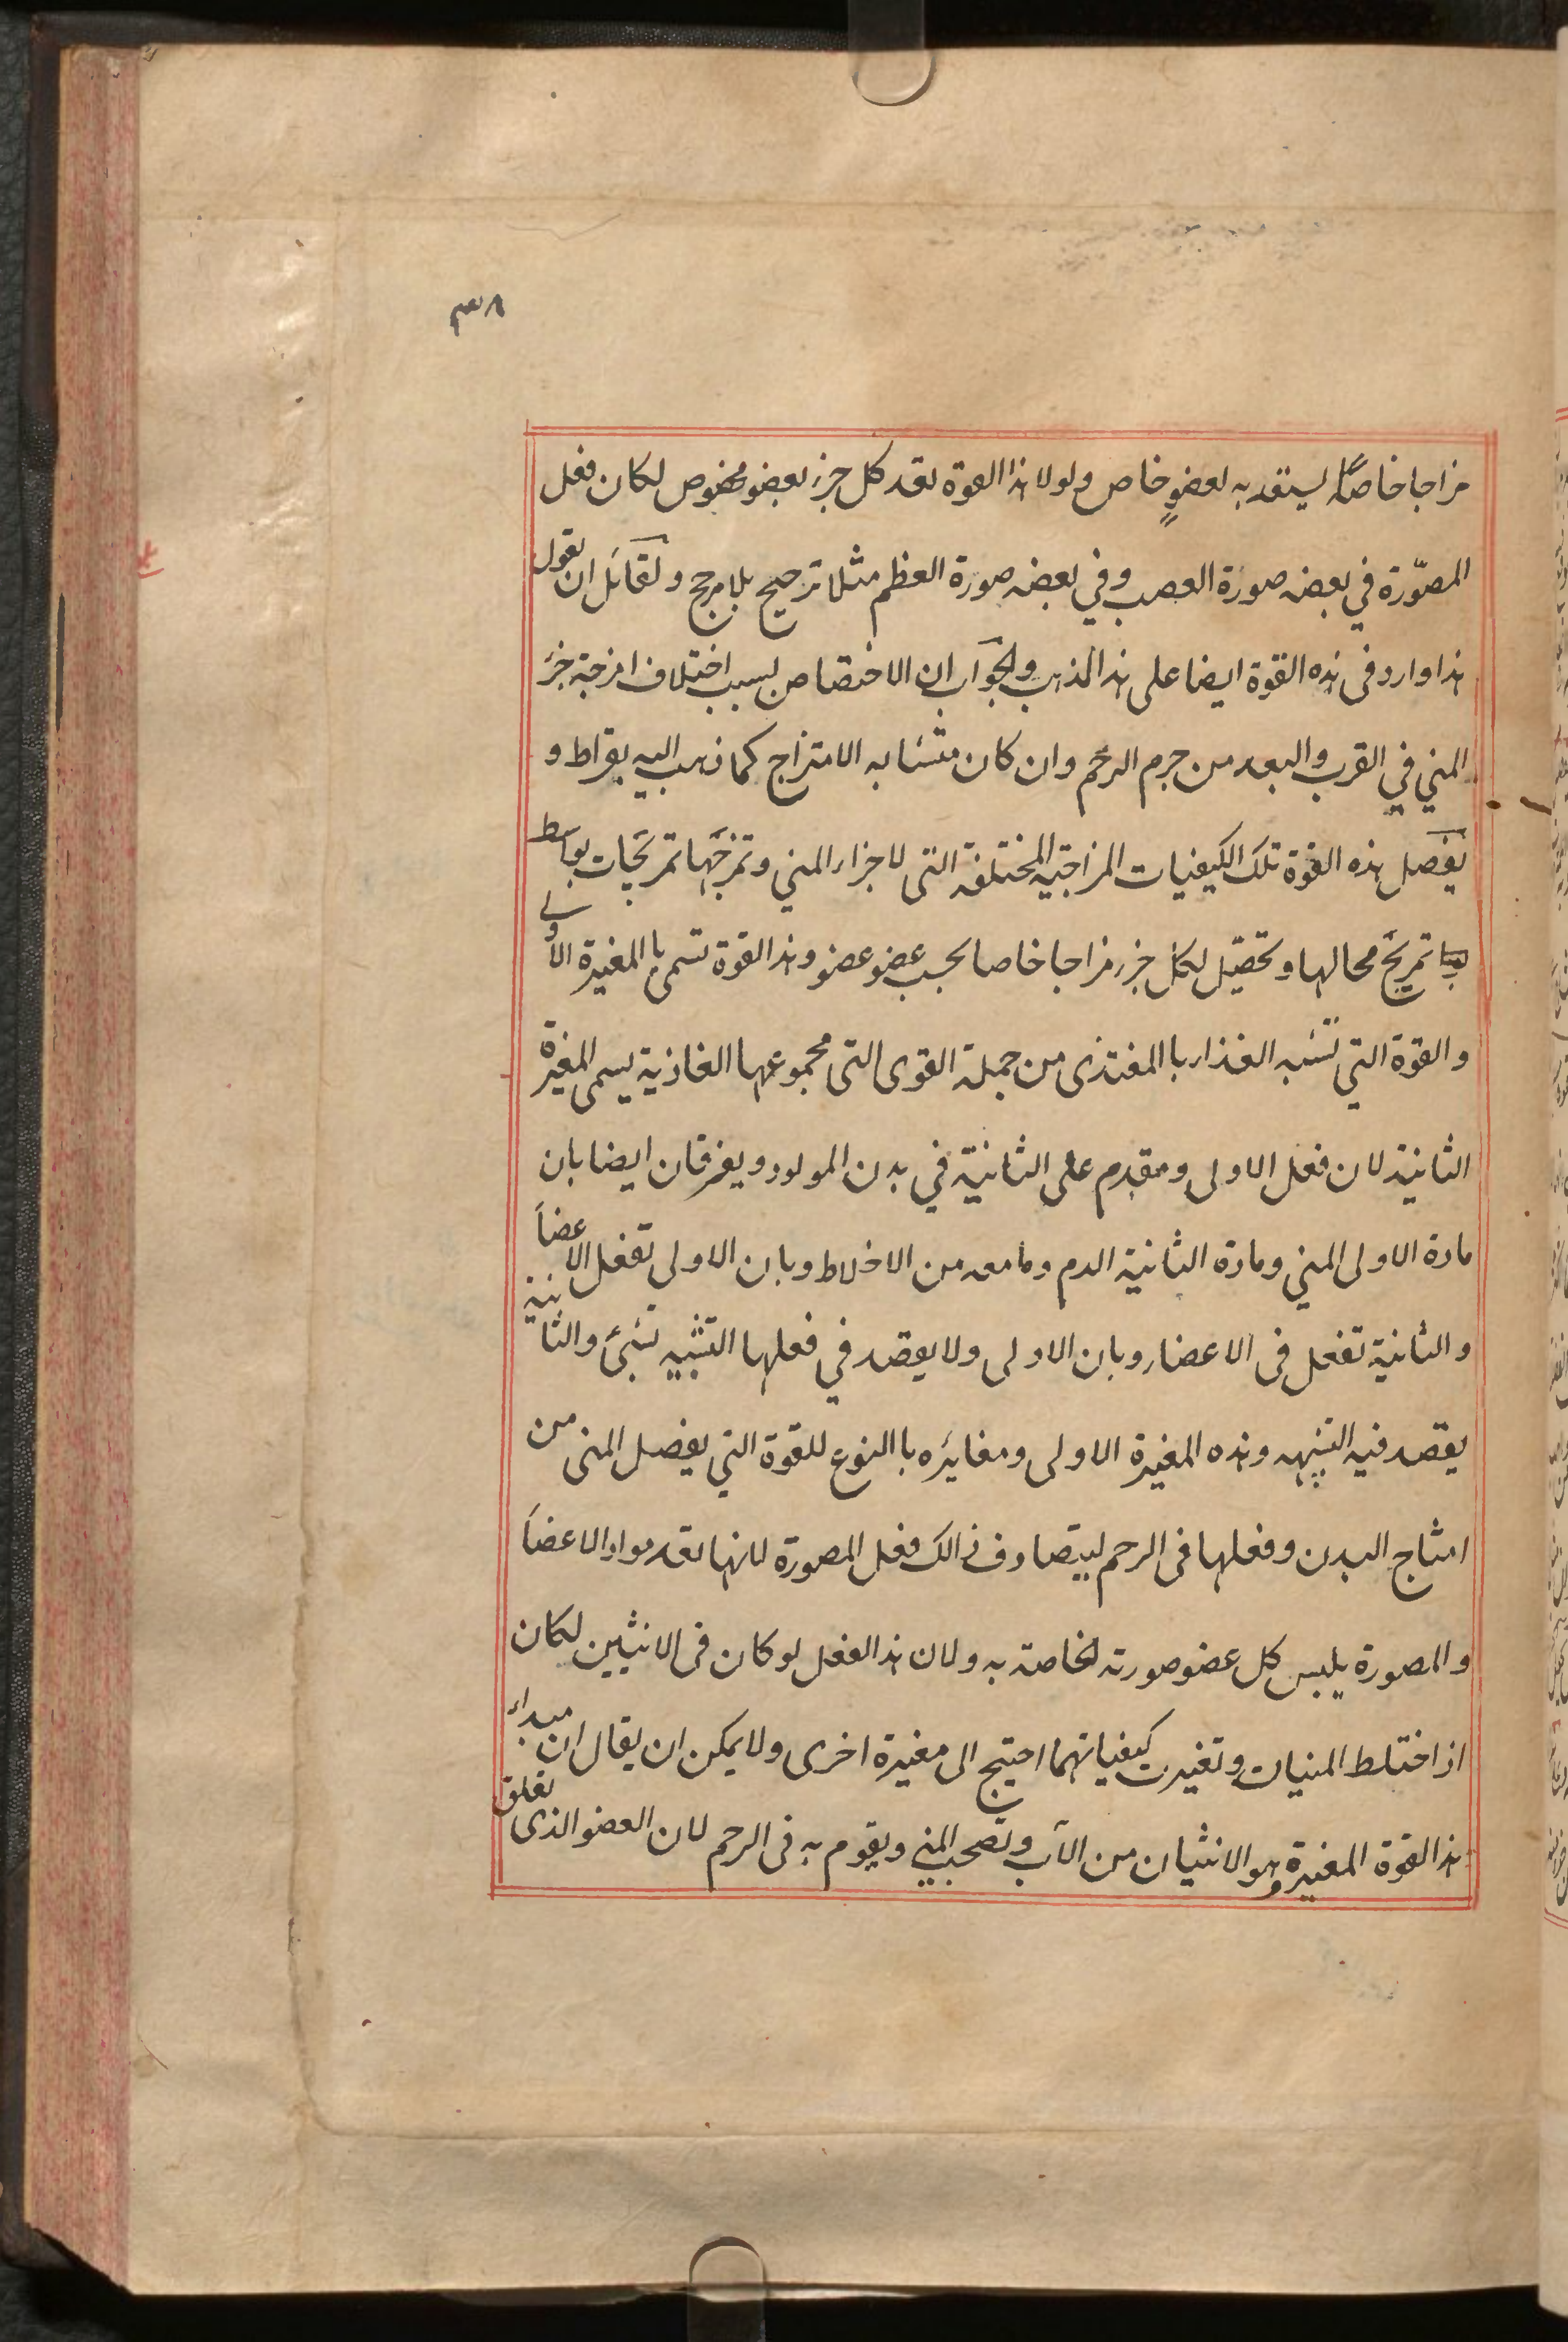 ٣٨
مزاجا خاصا يستعد به لعضو خاص ولولا هذا القوة تعد كل جزء بعضو مخصوص لكان فعل
المصوّرة في بعضه صورة العصب وفي بعضه صورة العظم مثلا ترجيح بلا مرجح ولقائل ان يقول
هذا وارد فى هذه القوة ايضا على هذا المذهب والجواب ان الاختصاص بسبب اختلاف امزجة جزء
المني في القرب والبعد من جرم الرحم وان كان متشابه الامتزاج كما ذهب اليه بقراط و
يفصل هذه القوة تلك الكيفيات المزاجية المختلفة التى لاجزاء المني وتمزجها تمريجات بواسط
تمريج محالها وتحصّل لكل جزء مزاجا خاصا بحسب عضو عضو وهذا القوة تسمى باالمغيرة الاولى
والقوة التي تشبه الغذاء باالمغتذى من جملة القوى التى مجموعها الغاذية يسمى المغيرة
الثانية لان فعل الاولى ومقدم على الثانية في بدن المولود ويفرقان ايضا بان
مادة الاولى المني ومادة الثانية الدم ومامعه من الاخلاط وبان الاولى تفعل الاعضاء
والثانية تفعل فى الاعضاء وبان الاولى ولا يقصد في فعلها التشبيه بشئ والثانية
يقصد فيه التشبه وهذه المغيرة الاولى ومغايره باالنوع للقوة التي يفصل المنى من
امشاج البدن وفعلها فى الرحم ليتصادف ذالك فعل المصورة لانها تعد مواد الاعضاء
والمصورة يلبس كل عضو صورته الخاصة به ولان هذا الفعل لو كان فى الانثيين لكان
اذا اختلط المنيان وتغيرت كيفياتهما احتيج الى مغيرة اخرى ولا يمكن ان يقال ان مبداء
هذا القوة المغيرة وهو الانثيان من الاب وتصحب المني ويقوم به فى الرحم لان العضو الذى تعلق